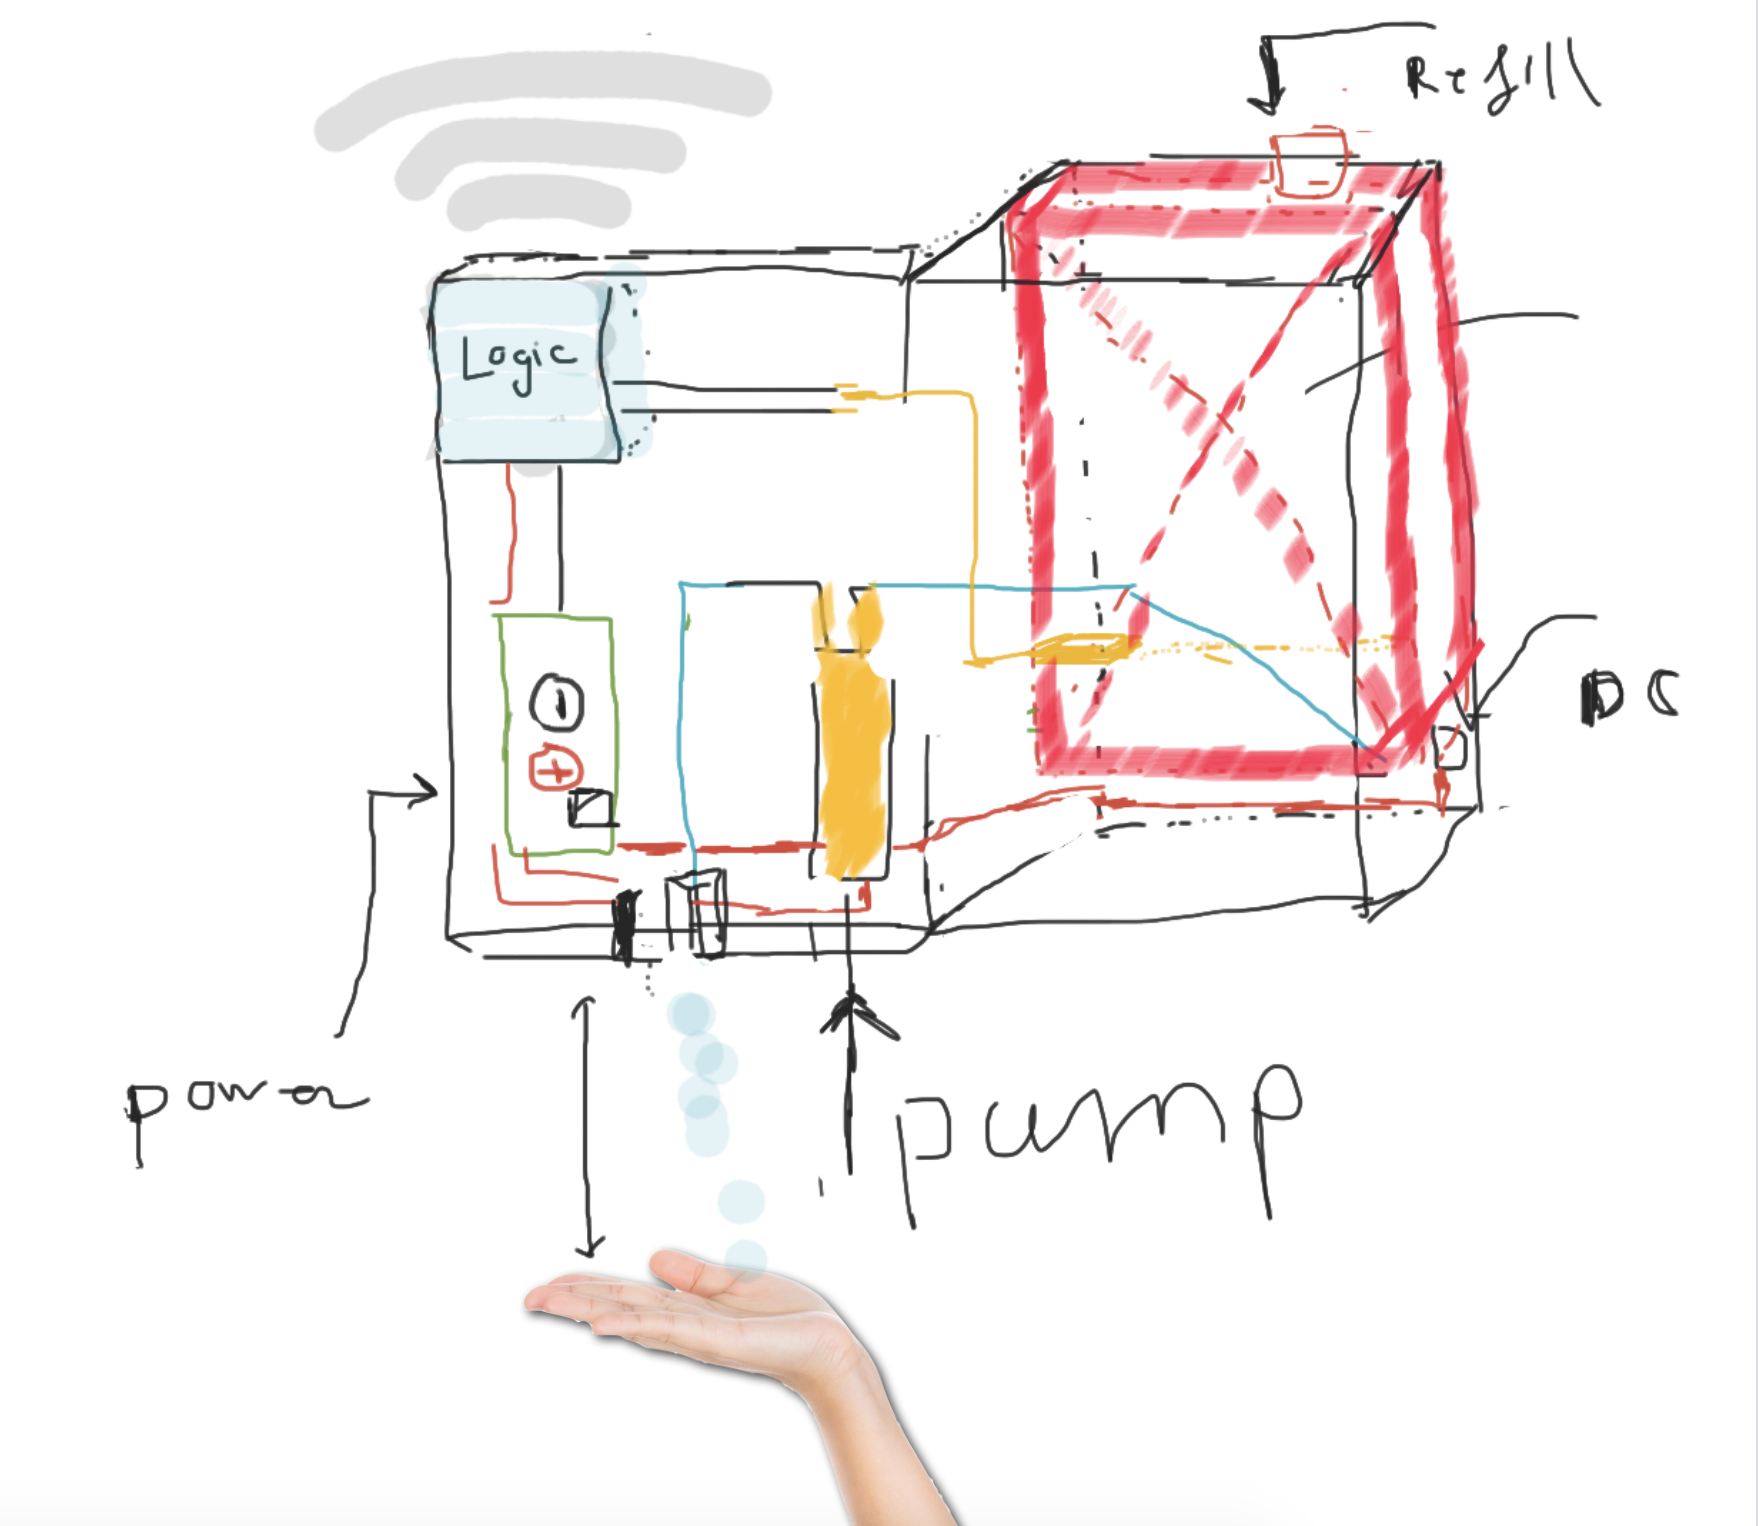 Refill
Logic
DC
power
pump